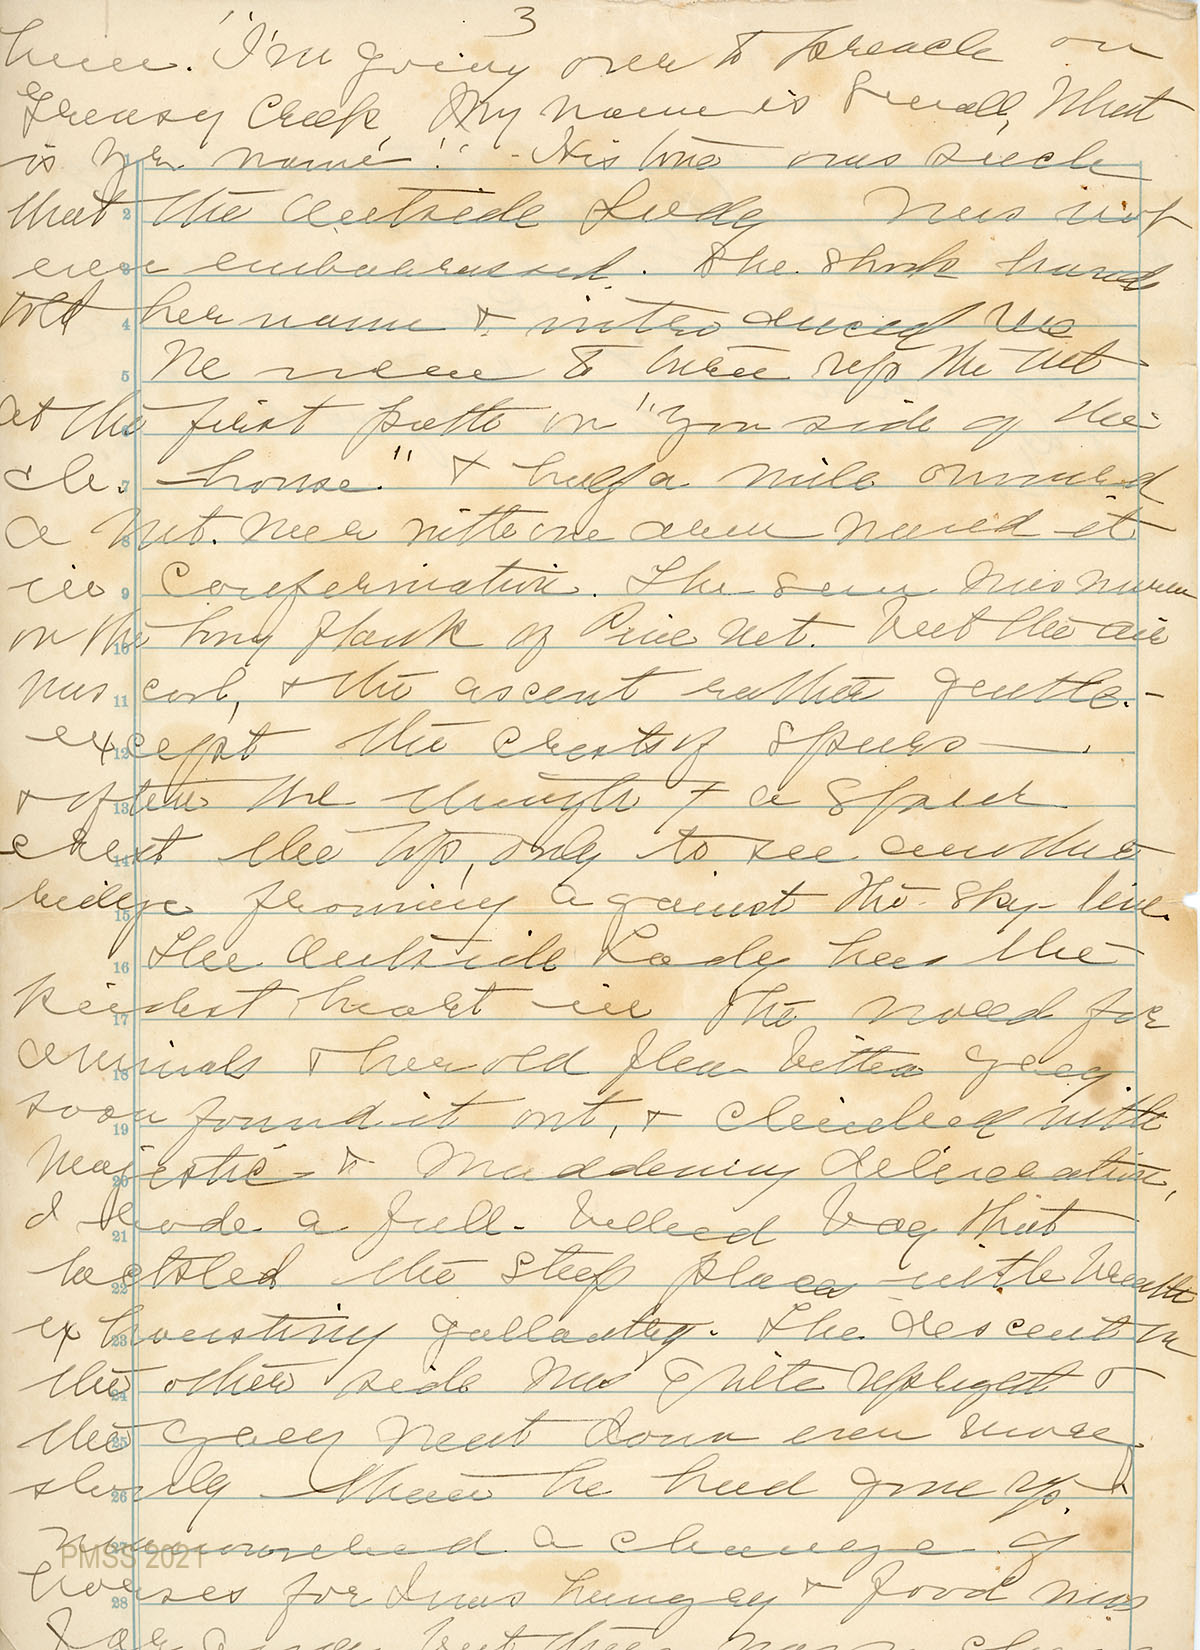 3
here. "I'm going over to preach on
Greasy Creek. My name is Small, What
is yer name"! - His tone was such
that the Outside Lady was not
even embarrassed. She shook hands
told her name & introduced us
We were to turn up the Mt
at the first path on "yon side of the
ch. house." & half a mile onward
a Mt. met us
in confirmation. The sun was warm
on the long flank of Pine Mt. but the air
was cool, & the ascent rather gentle. -
except the crests of spurs —.
& often we thought a spur
crest the top, only to see another
ridge frowning against the sky-line.
The Outside Lady has the
kindest heart in the world for
animals & her old flea bitten grey
soon found it out, & climbed with
majestic & maddening deliberation,
I rode a full-bellied bay that
tackled the steep places with breath
exhausting gallantry. The descent on
the other side was quite upright &
the grey went down even more
slowly than he had gone up. I
a change of
horses for I was hungry & food was
PMSS 2021